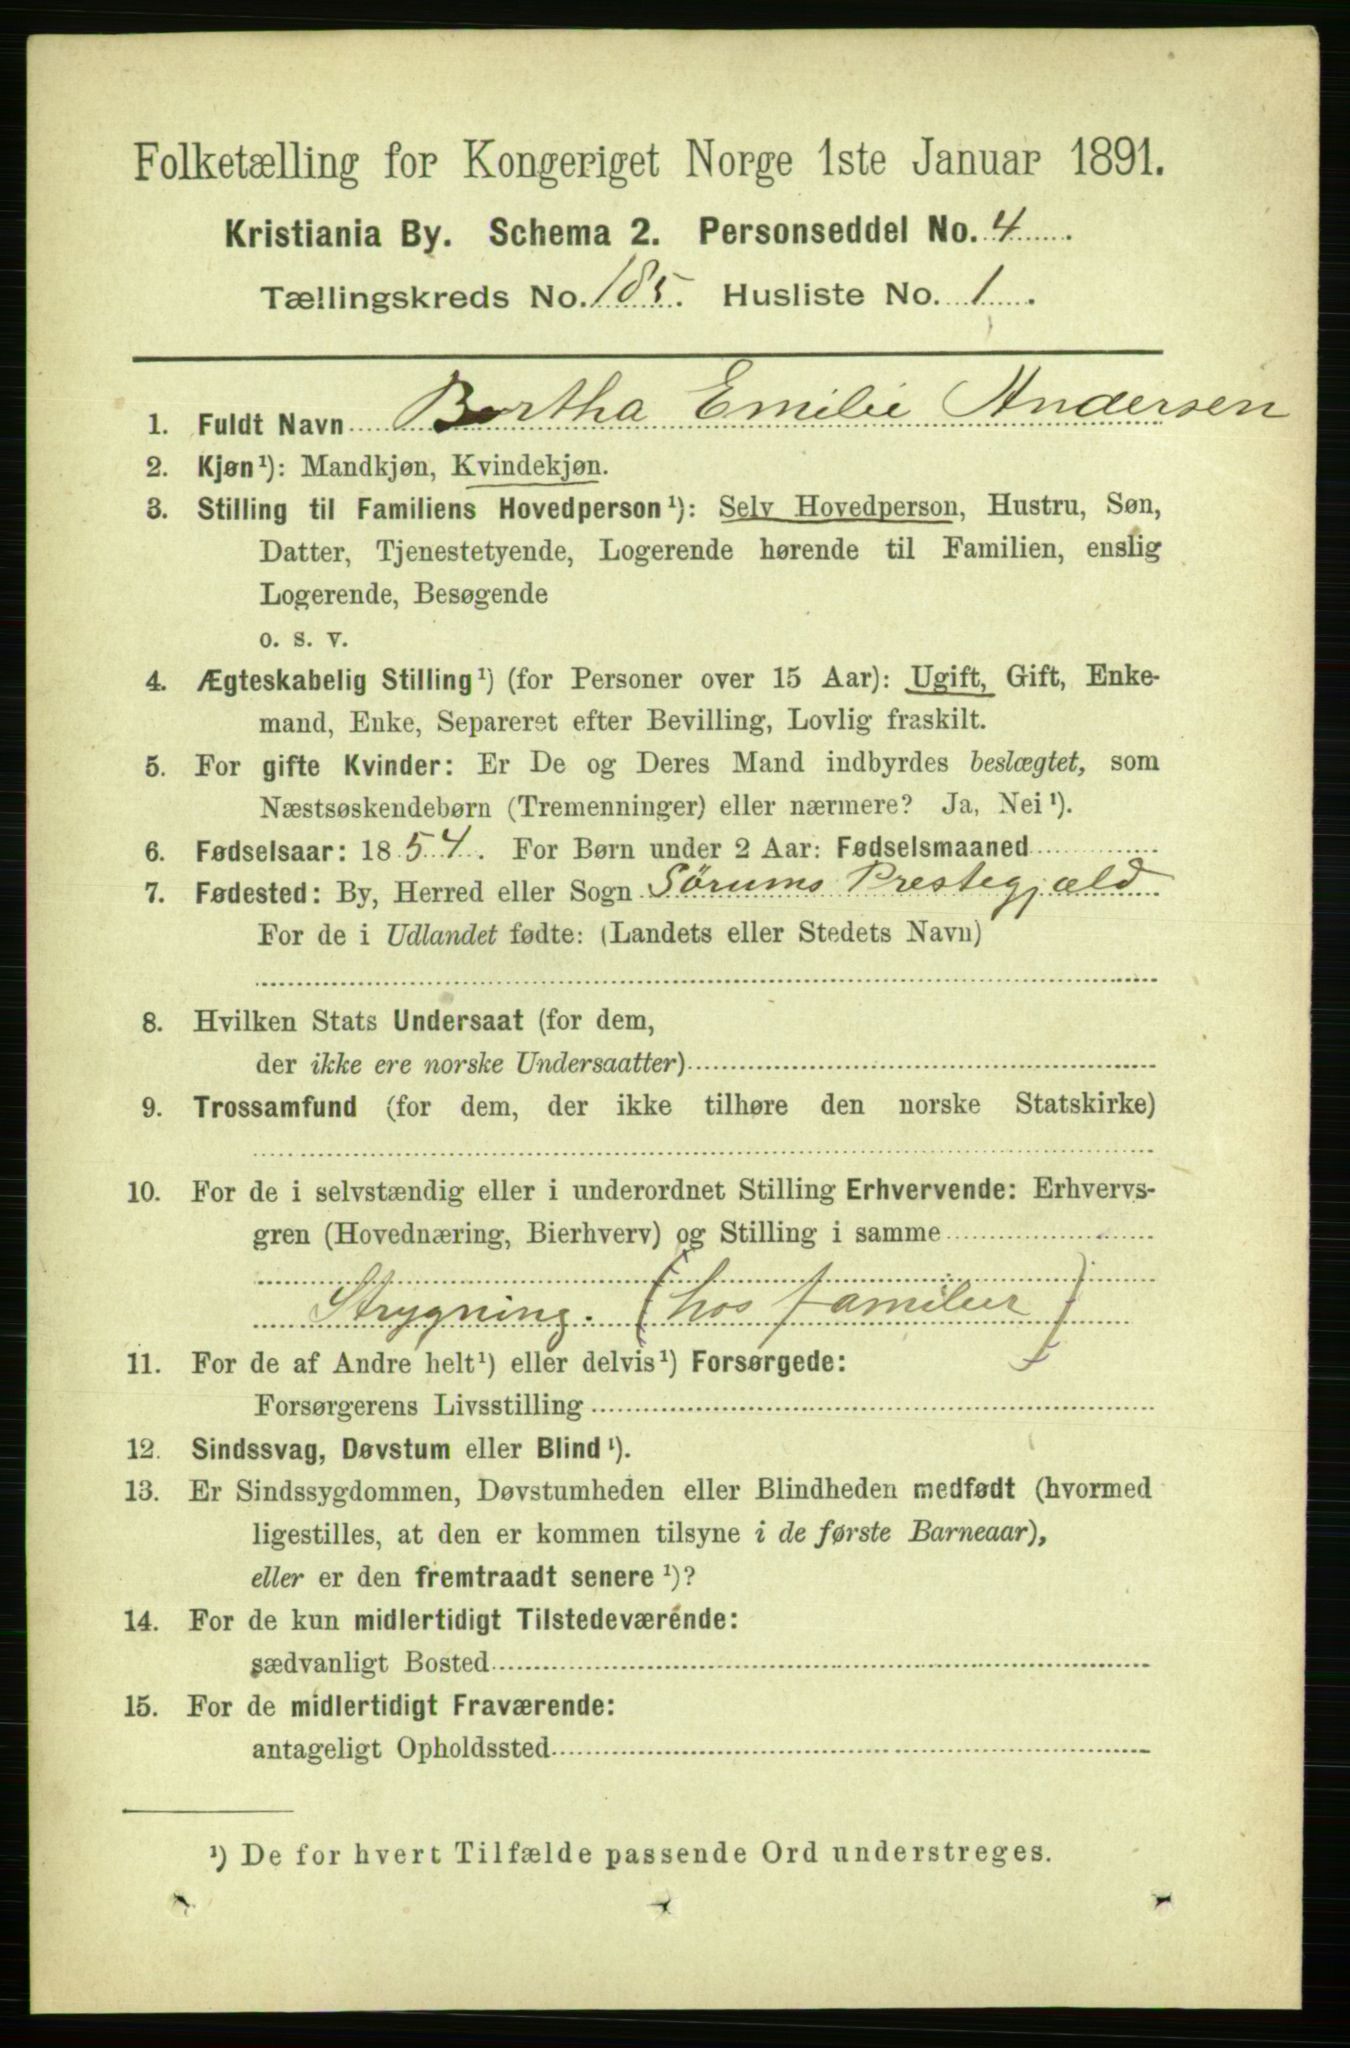 Folketælling for Kongeriget Norge 1ste Januar 1891.
Kristiania By. Schema 2. Personseddel No. 4
Tællingskreds No. 185. Husliste No. 1.
1. Fuldt Navn Bertha Emilie Andersen
2. Kjøn¹): Mandkjøn, Kvindekjøn.
3. Stilling til Familiens Hovedperson¹): Selv Hovedperson, Hustru, Søn,
Datter, Tjenestetyende, Logerende hørende til Familien, enslig
Logerende, Besøgende
o. s. v.
4. Ægteskabelig Stilling¹) (for Personer over 15 Aar): Ugift, Gift, Enke-
mand, Enke, Separeret efter Bevilling, Lovlig fraskilt.
5. For gifte Kvinder: Er De og Deres Mand indbyrdes beslægtet, som
Næstsøskendebørn (Tremenninger) eller nærmere? Ja, Nei¹).
6. Fødselsaar: 1854. For Børn under 2 Aar: Fødselsmaaned
7. Fødested: By, Herred eller Sogn Sørums Prestegjæld
For de i Udlandet fødte: (Landets eller Stedets Navn)
8. Hvilken Stats Undersaat (for dem,
der ikke ere norske Undersaatter)
9. Trossamfund (for dem, der ikke tilhøre den norske Statskirke)
10. For de i selvstændig eller i underordnet Stilling Erhvervende: Erhvervs-
gren (Hovednæring, Bierhverv) og Stilling i samme
Strygning. (hos familier)
11. For de af Andre helt¹) eller delvis¹) Forsørgede:
Forsørgerens Livsstilling
12. Sindssvag, Døvstum eller Blind¹).
13. Er Sindssygdommen, Døvstumheden eller Blindheden medfødt (hvormed
ligestilles, at den er kommen tilsyne i de første Barneaar),
eller er den fremtraadt senere¹)?
14. For de kun midlertidigt Tilstedeværende:
sædvanligt Bosted
15. For de midlertidigt Fraværende:
antageligt Opholdssted
¹) De for hvert Tilfælde passende Ord understreges.